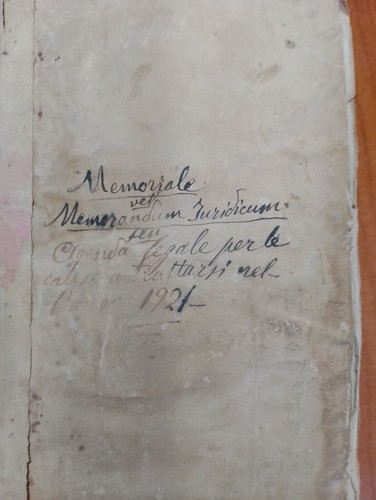 Memoriale
vel
Memorandum Iuridicum.
seu
Agenda legale per le
cause a trattarsi nel
l'anno 1921